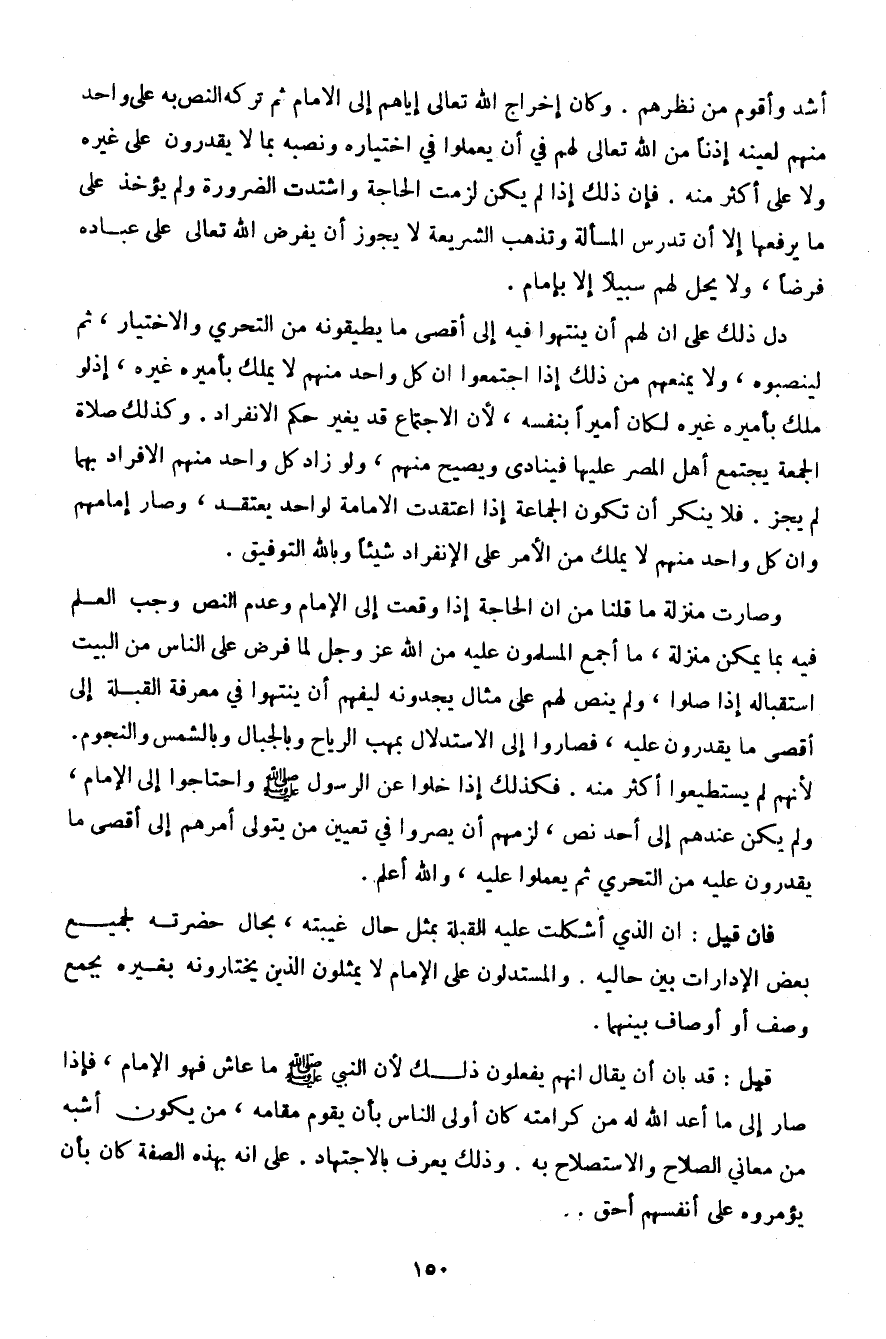 أشد وأقوم من نظرهم . وكان إخراج الله تعالى إياهم إلى الامام ثم تركه النص به على واحد
منهم لعينه إذناً من الله تعالى لهم في أن يعملوا في اختياره ونصبه بما لا يقدرون على غيره
ولا على أكثر منه . فإن ذلك إذا لم يكن لزمت الحاجة واشتدت الضرورة ولم يؤخذ على
ما يرفعها إلا أن تدرس المسألة وتذهب الشريعة لا يجوز أن يفرض الله تعالى على عباده
فرضاً ، ولا يحل لهم سبيلاً إلا بإمام .
دل ذلك على ان لهم أن ينتهوا فيه إلى أقصى ما يطيقونه من التحري والاختيار ، ثم
لينصبوه ، ولا يمنعهم من ذلك إذا اجتمعوا ان كل واحد منهم لا يملك بأميره غيره ، إذ لو
ملك بأميره غيره لكان أميراً بنفسه ، لأن الاجتماع قد يغير حكم الانفراد . وكذلك صلاة
الجمعة يجتمع أهل المصر عليها فينادى ويصيح منهم ، ولو زاد كل واحد منهم الافراد بها
لم يجز . فلا ينكر أن تكون الجماعة إذا اعتقدت الامامة لواحد يعتقد ، وصار إمامهم
وان كل واحد منهم لا يملك من الأمر على الإنفراد شيئاً وبالله التوفيق .
وصارت منزلة ما قلنا من ان الحاجة إذا وقعت إلى الإمام وعدم النص وجب العلم
فيه بما يمكن منزلة ، ما أجمع المسلمون عليه من الله عز وجل لما فرض على الناس من البيت
استقباله إذا صلوا ، ولم ينص لهم على مثال يجدونه ليفهم أن ينتهوا في معرفة القبلة إلى
أقصى ما يقدرون عليه ، فصاروا إلى الاستدلال بمهب الرياح وبالجبال وبالشمس والنجوم.
لأنهم لم يستطيعوا أكثر منه . فكذلك إذا خلوا عن الرسول ﷺ واحتاجوا إلى الإمام ،
ولم يكن عندهم إلى أحد نص ، لزمهم أن يصروا في تعيين من يتولى أمرهم إلى أقصى ما
يقدرون عليه من التحري ثم يعملوا عليه ، والله أعلم .
فان قيل : ان الذي أشكلت عليه القبلة بمثل حال غيبته ، بحال حضرته لجميع
بعض الإدارات بين حاليه . والمستدلون على الإمام لا يمثلون الذين يختارونه بغيره يجمع
وصف أو أوصاف بينهما .
قيل : قد بان أن يقال انهم يفعلون ذلك لأن النبي ﷺ ما عاش فهو الإمام ، فإذا
صار إلى ما أعد الله له من كرامته كان أولى الناس بأن يقوم مقامه ، من يكون أشبه
من معاني الصلاح والاستصلاح به . وذلك يعرف بالاجتهاد . على انه بهذه الصفة كان بأن
يؤمروه على أنفسهم أحق . .
١٥٠